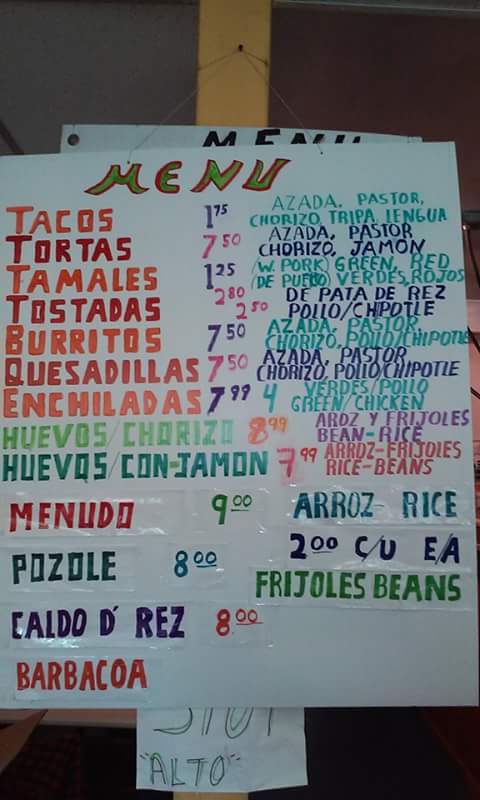 MENU
MENU
TACOS 1.75 AZADA, PASTOR, CHORIZO, TRIPA, LENGUA
TORTAS 7.50 AZADA, PASTOR CHORIZO, JAMON
TAMALES 1.25 (W. PORK) GREEN, RED
(DE PUERO) VERDES, ROJOS
TOSTADAS 2.80 DE PATA DE REZ
2.50 POLLO/CHIPOTLE
BURRITOS 7.50 AZADA, PASTOR, CHORIZO, POLLO/CHIPOTLE
QUESADILLAS 7.50 AZADA, PASTOR CHORIZO, POLLO/CHIPOTLE
ENCHILADAS 7.99 4 VERDES/POLLO GREEN/CHICKEN
HUEVOS/CHORIZO 8.99 AROZ Y FRIJOLES BEAN-RICE
HUEVOS/CON-JAMON 7.99 ARROZ-FRIJOLES RICE-BEANS
MENUDO 9.00 ARROZ- RICE
POZOLE 8.00 2.00 C/U E/A
FRIJOLES BEANS
CALDO D' REZ 8.00
BARBACOA
"ALTO"